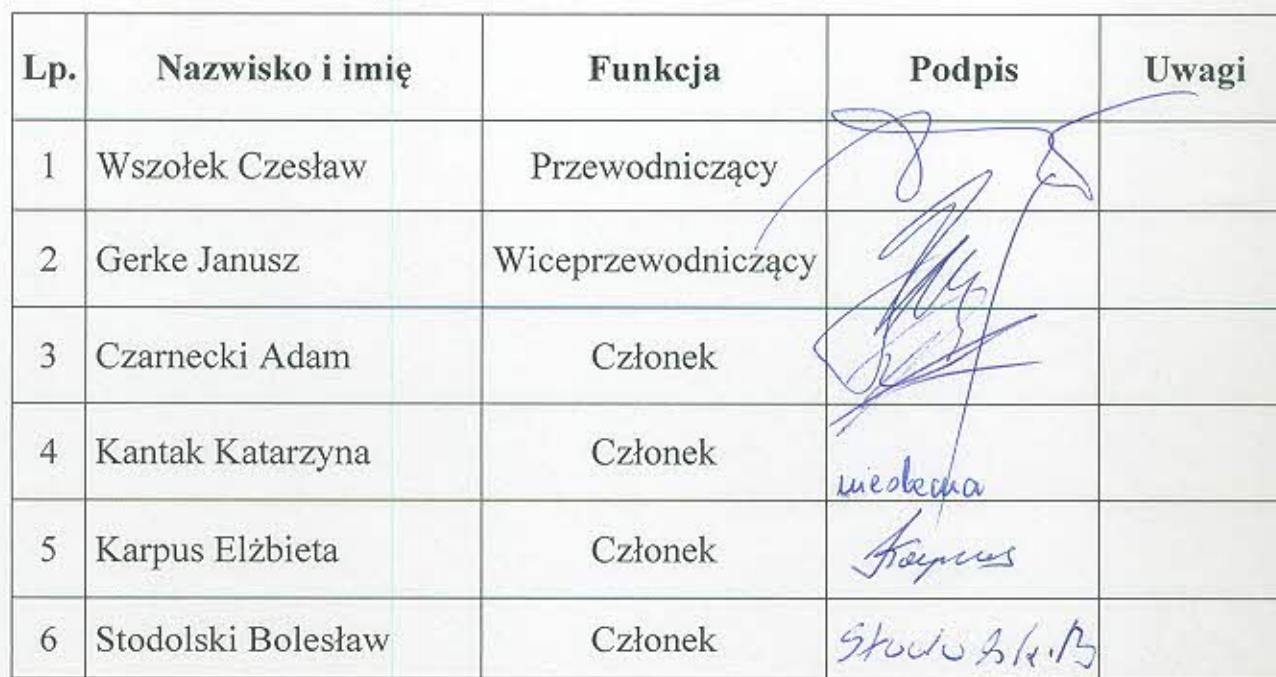 Lp. Nazwisko i imię Funkcja Podpis Uwagi
1 Wszołek Czesław Przewodniczący
2 Gerke Janusz Wiceprzewodniczący
3 Czarnecki Adam Członek
4 Kantak Katarzyna Członek nieobecna
5 Karpus Elżbieta Członek Karpus
6 Stodolski Bolesław Członek